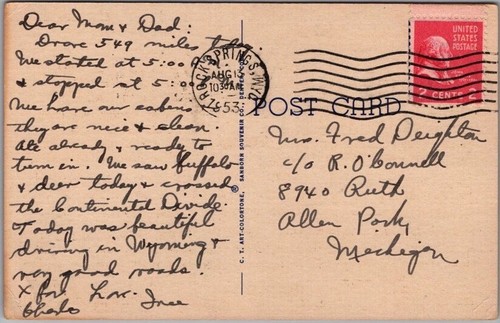 Dear Mom & Dad:
Drove 549 miles today.
We stated at 5:00
& stopped at 5:00
We have our cabins
they are nice & clean.
All already & ready to
turn in. We saw buffalo
& deer today & crossed
the Continental Divide.
Today was beautiful
driving in Wyoming &
very good roads.
X for Love.
ROCK SPRINGS, WYO.
AUG 13
10 30 AM
1953
UNITED
STATES
POSTAGE
2 CENTS 2
POST CARD
Mrs. Fred Deighton
c/o R. O'Connell
8940 Ruth
Allen Park,
Mechigan
C. T. ART-COLORTONE, ® SANBORN SOUVENIR CO., DENVER